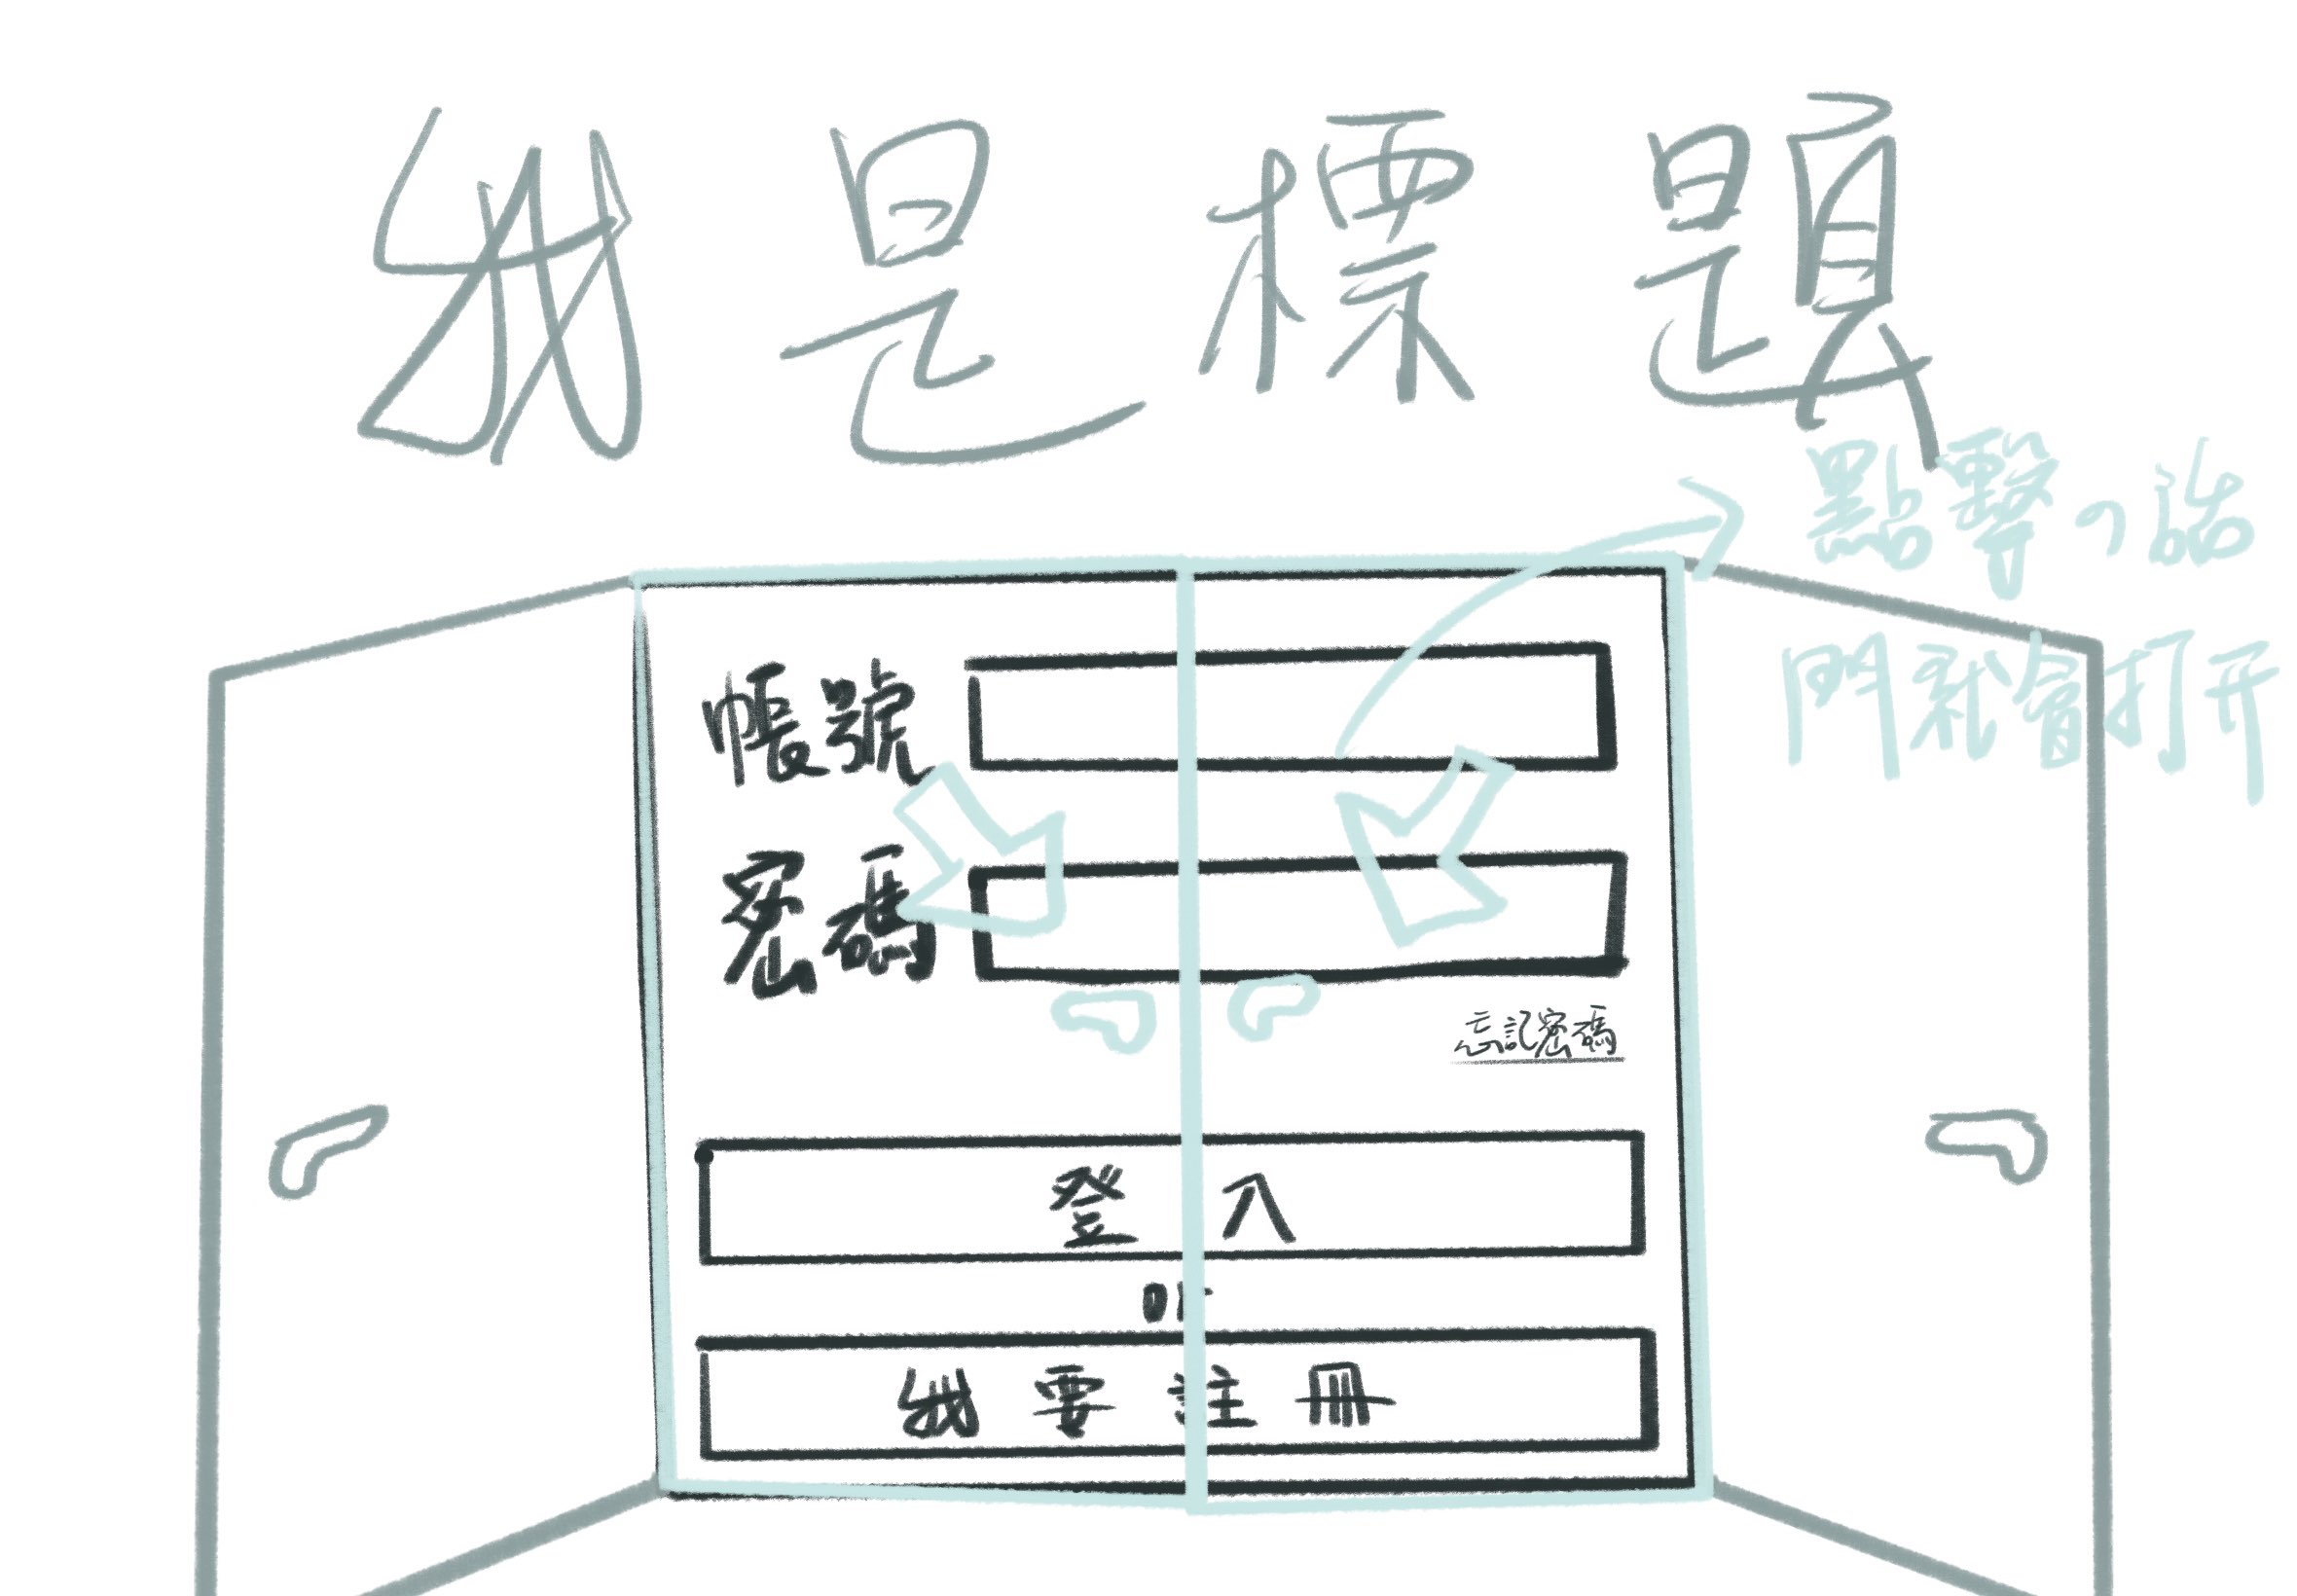 我是標題
點擊の話
門就會打开
帳號
密碼
忘記密碼
登入
or
我要註冊